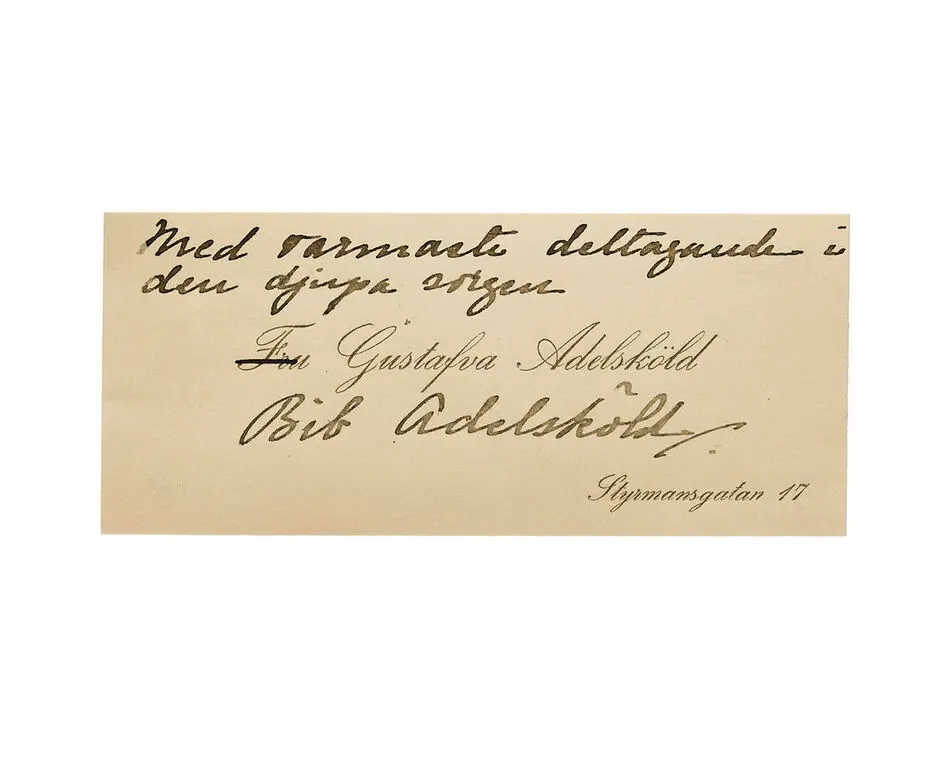 Med varmaste deltagande i
den djupa sorgen
Fru Gustafva Adelsköld
Bib Adelsköld
Styrmansgatan 17